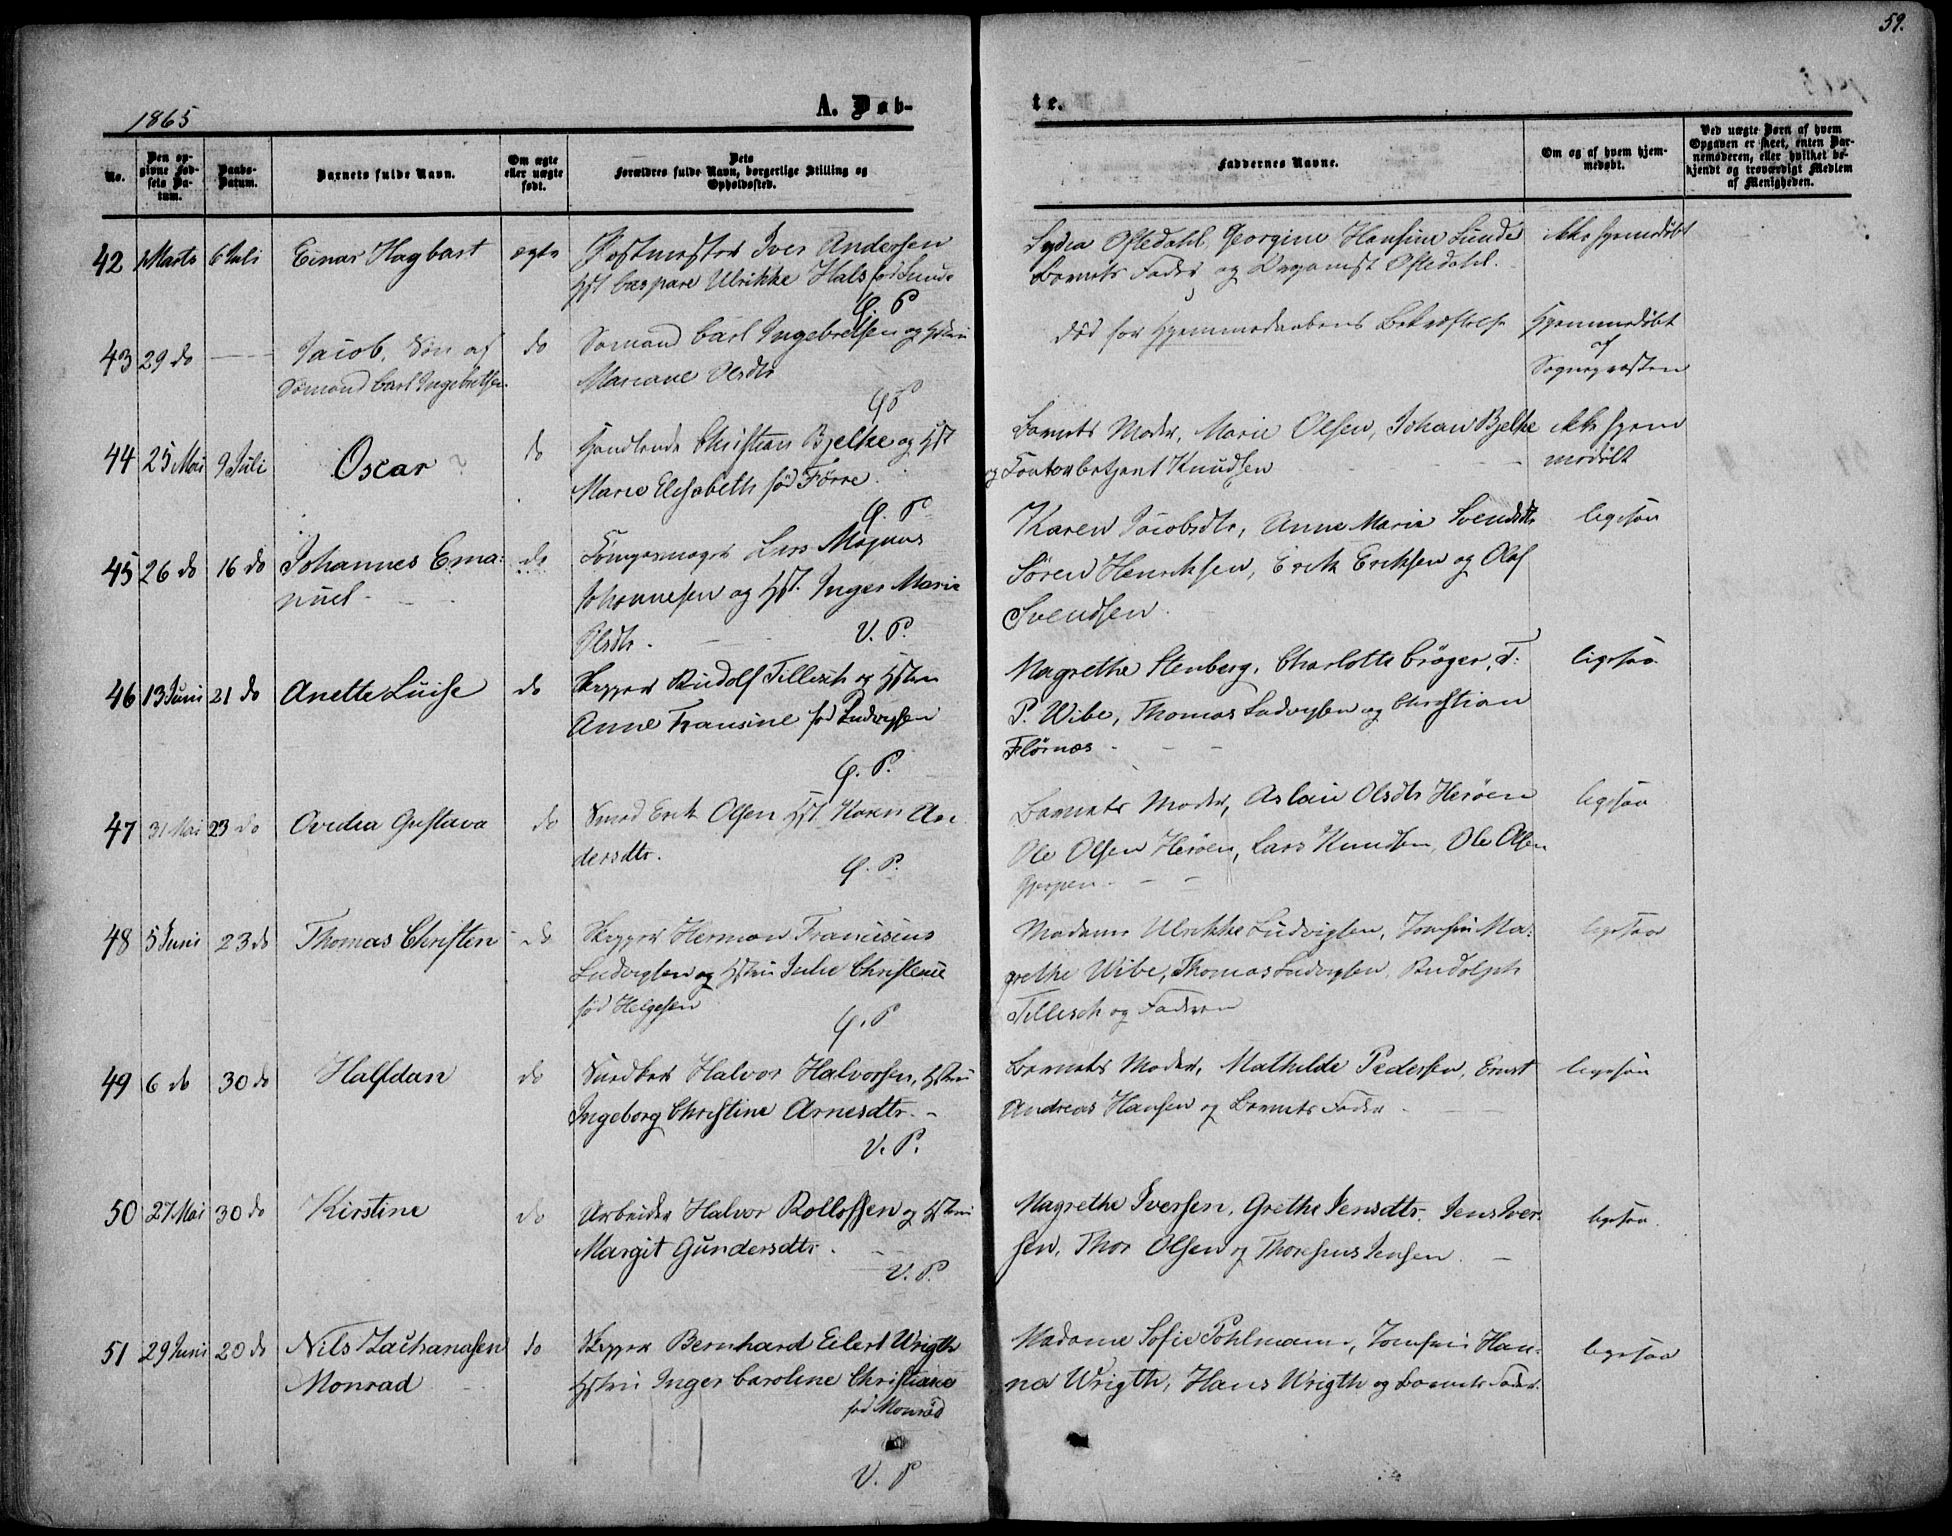 59.
1865
A. Døb-
te.
No.
Den opgivne Fødsels Datum.
Daabs-Datum.
Barnets fulde Navn.
Om ægte eller uægte født.
Dets Forældres fulde Navn, borgerlige Stilling og Opholdssted.
Faddernes Navne.
Om og af hvem hjemmedøbt.
Ved uægte Børn af hvem Opgaven er skeet, enten Barnemoderen, eller hvilket bekjendt og troværdigt Medlem af Menigheden.
42 Marts 6 Juli Einar Hagbart ægte Postmester Iver Andersen
Hst Caspare Ulrikke Hals fød Lunde
G. P
Lydia Oftedahl, Georgine Hansine Lunde
Barnets Fader og Organist Oftedahl.
ikke hjemdøbt
43 29 do Jacob, Søn af
Sømand Carl Ingebretsen.
do Sømand Carl Ingebretsen og Hstru
Mariane Olsdtr
G P
død før Hjemmedaabens Bekræftelse
Hjemmedøbt
af
Sognepræsten
44 25 Mai 9 Juli Oscar do Handlende Christian Bjelke og Hst
Marie Elisabeth fød Førre.
G. P
Barnets Moder, Marie Olsen, Johan Bjelke
og Contorbetjent Knudsen
ikke hjem
medøbt
45 26 do 16 do Johannes Ema-
nuel
do Lars Magnus
Johannesen og Hst. Inger Marie
Olsdtr.
V. P.
Karen Jacobsdtr, Anne Marie Svendsdtr
Søren Henriksen, Erik Eriksen og Olaf
Svendsen.
ligesaa
46 13 Juni 21 do Anette Luise do Skipper Rudolf Tillisch og Hstru
Anne Fransine fød Ludvigsen
G. P.
Magrethe Stenberg, Charlotte Crøger, T:
P. Wibe, Thomas Ludvigsen og Christian
Flørnæs
ligesaa
47 31 Mai 23 do Ovedia Gustava do Smed Erik Olsen Hst. Karen An-
dersdtr.
G. P.
Barnets Moder, Aslau Olsdtr Herøen
Ole Olsen Herøen, Lars Knudsen, Ole Olsen
Gjerpen
ligesaa
48 5 Juni 23 do Thomas Christen do Skipper Herman Franciscus
Ludvigsen og Hstru Julie Christense
fød Helgesen
G. P
Madame Ulrikke Ludvigsen, Jomfru Ma-
grethe Wibe, Thomas Ludvigsen, Rudolph
Tillisch og Faderen
ligesaa
49 6 do 30 do Halfdan do Snedker Halvor Halvorsen, Hstru
Ingeborg Christine Arnesdtr.
V. P.
Barnets Moder, Mathilde Pedersen, Ernst
Andreas Hansen og Barnets Fader
ligesaa
50 27 Mai 30 do Kirstine do Arbeider Halvor Rollefsen og Hstru
Margit Gundersdtr.
V. P.
Magrethe Iversen, Grethe Jensdtr. Jens Iver-
sen, Thor Olsen og Thorsens Jensen.
ligesaa
51 29 Juni 20 do Nils Zachariasen
Monrad
do Skipper Bernhard Eilert Wrigth
Hstru Inger Caroline Christiane
fød Monrad
V. P
Madame Sofie Pohlmann, Jomfru Han-
na Wrigth, Hans Wrigth og Barnets Fader.
ligesaa